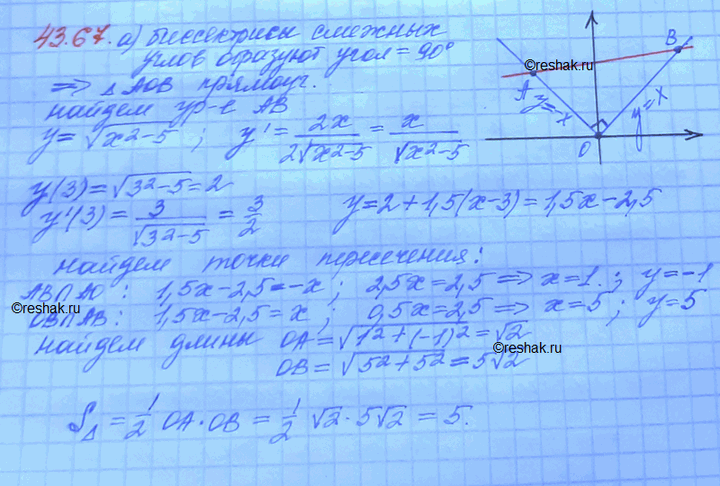 43.67. а) биссектрисы смежных
углов образуют угол = 90°
=> △ AOB прямоуг.
найдем ур-е AB
y = √(x²-5) ; y' = 2x / 2√(x²-5) = x / √(x²-5)
y(3) = √(3²-5) = 2
y'(3) = 3 / √(3²-5) = 3/2 y = 2 + 1,5(x-3) = 1,5x - 2,5
найдем точки пересечения:
AB∩AO : 1,5x - 2,5 = -x ; 2,5x = 2,5 => x = 1. ; y = -1
OB∩AB : 1,5x - 2,5 = x ; 0,5x = 2,5 => x = 5 ; y = 5
найдем длины OA = √(1²+(-1)²) = √2
OB = √(5²+5²) = 5√2
S△ = 1/2 OA·OB = 1/2 √2·5√2 = 5.
A
B
O
y=-x
y=x
©reshak.ru
©reshak.ru
©reshak.ru